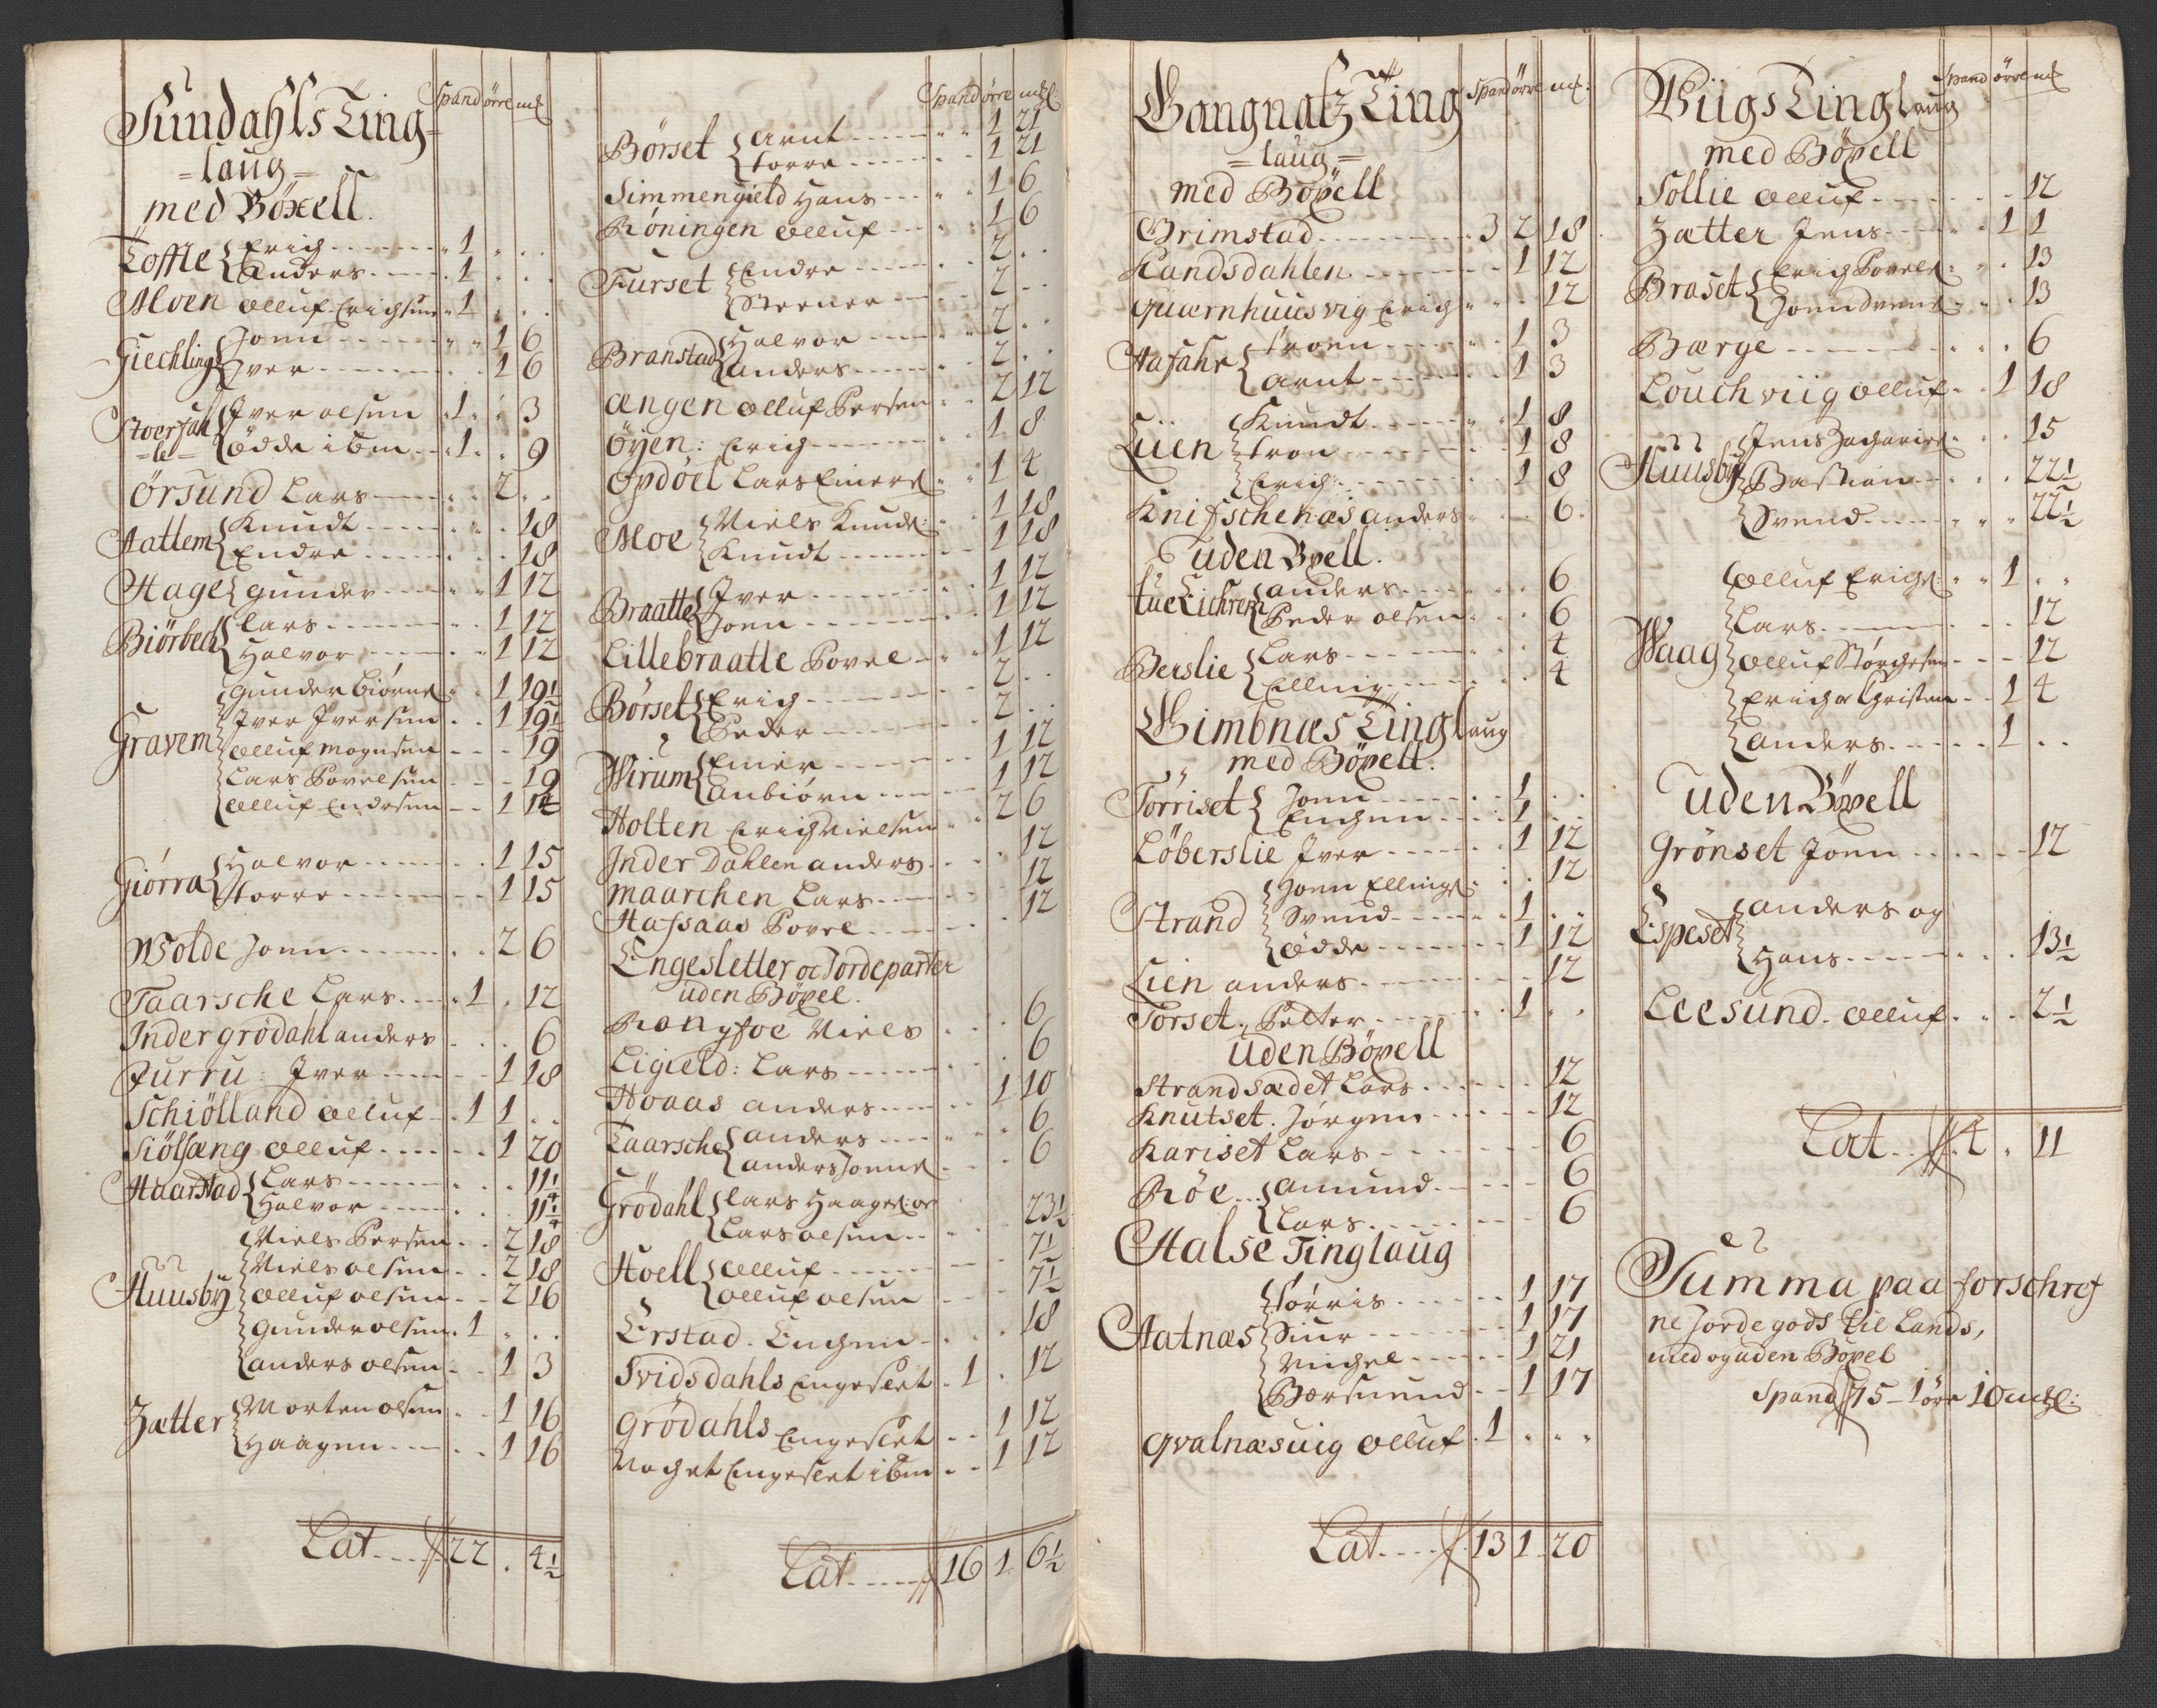 Spand örre mk
Sundahls Ting=
=laug=
med Böxell.
Töffle { Erich - - - 1 . .
Anders - - - 1 . .
Moen olluf Erichsen 1 . .
Giechling { Joen - - - 1 6
Iver - - - 1 6
Stoersah { Iver olsen 1 . 3
=le= ödde ibm - - 1 . 9
Örsund Lars - - - 2 . .
Hattem { Knudt - - - 18
Endre - - - 18
Hage { gunder - - - 1 12
Biörbech { Lars - - - 1 12
Halvor - - - 1 12
gunder biörns 1 19½
Iver Iversen . . 1 19½
Gravem { olluf mognsen - - - 19
Lars Povelsen - - - 19
olluf Endresen - - 1 14
Giörra { Halvor - - - 1 15
Torre - - - 1 15
Wolde Joen - - - 2 6
Taarsche Lars - - - 1 . 12
Inder grödahl anders . . . 6
Furru : Iver - - - 1 18
Schiölland olluf - . 1 1 . .
Siölsæng olluf - - - 1 20
Haarstad { Lars - - - 11¼
Halvor - - - 11¼
Niels Persen . . 2 18
Niels olsen - - 2 18
Huusbÿ { olluf olsen - - 2 16
gunder olsen . 1 . . .
anders olsen - - 1 3
Zætter { Morten olsen . . 1 16
Haagen - - - 1 16
Lat. - - - 22 . 4½
Spand örre mk
Börset { arnt - - - 1 21
torre - - - 1 21
Simmengield Hans - - - 1 6
Röningen olluf - - - 1 6
Furset { Endre - - - 2 . .
Steener - - - 2 . .
Branstad { Halvor - - - 2 . .
anders - - - 2 . .
ængen olluf Persen . . 2 12
öyen : Erich - - - 1 8
Opdöel Lars Einers . . 1 4
Moe { Niels Knuds . 1 18
Knudt - - - 1 18
Braatte { Iver - - - 1 12
Joen - - - 1 12
Lillebraatte Povel - - 1 12
Börset { Erich - - - 2 . .
Peder - - - 2 . .
Wirum { Einer - - - 1 12
anbiörn - - - 1 12
Holten Erich Nielsen . . 2 6
Inder Dahlen anders . . . 12
maarchen Lars - - - 12
Hafsaas Povel - - - 12
Engesletter oc Jordeparter
uden Böxel.
Rongfoe Niels . . . 6
Ligield : Lars - - - 6
Hoaas anders - - - 1 10
Taarsche { anders - - - 6
anders Joens . . . 6
Grödahl { Lars Haages: oc
Lars olsen . . . 23½
Hoell { olluf - - - 7½
olluf olsen - - - 7½
Erstad . Engen - . . 18
Svidsdahls Engeslet . 1 . 12
Grödahls Engeslet - - 1 12
Noch et Engeslet ibm . . 1 12
Lat. - - - 16 1 6½
Spand örre mk:
Gangnatz Ting
=laug=
med Böxell
Grimstad - - - 3 2 18
Handsdahlen - - - 1 12
quærnhuusvig Erich . . 12
Aasahr { Troen - - - 1 3
arnt - - - 1 3
Lien { Knudt - - - 1 8
tron - - - 1 8
Erich - - - 1 8
Knifschenæs anders . . . 6
uden Bxell.
tue Lichrem { anders - - - 6
Peder olsen . . . 6
Berslie { Lars - - - 4
Elling - - - 4
Gimbnæs Tinglaug
med Böxell.
Törriset { Joen - - - 1 . .
Engen - - - 1 . .
Löberslie Iver - - - 1 12
Joen Ellings . . . 12
Strand { Svend - - - 1 . .
ödde - - - 1 12
Lien anders - - - 12
Torset . Petter - - - 1 . .
uden Böxell
Strandsædet Lars - - - 12
Knutset . Jörgen - - - 12
Kariset Lars - - - 6
Röe . . . { amund - - - 6
Lars - - - 6
Halse Tinglaug
Torris - - - 1 17
Aatnæs { Siur - - - 1 17
Michel - - - 1 21
Borsuend - - 1 17
qvalnæsuig olluf . 1 . . .
Lat. - - - 13 1 20
Spand örre mk
Wiigs Tinglaug
med Böxell
Sollie olluf - - - 12
Zætter Jens - - - 1 1
Braset { Erich Povels . . . 13
Joen Svends . . . 13
Bærge - - - 6
Louchviig olluf . . 1 18
Jens Zacharies . . . 15
Huusbÿ { Bastian - - - 22½
Svend - - - 22½
olluf Erichs . . 1 . .
Lars - - - 12
Waag { olluf Störchesen - - - 12
Erich oc Christen - - 1 4
anders - - - 1 . .
uden Böxell
Grönset Joen - - - 12
Espeset { anders og
Hans - - - 13½
Leesund . olluf . . . 2½
Lat. - - - . 11
Summa paa forschref
ne Jorde gods til Lands,
med og uden Böxel
Spand 75 - 1 örre 10 mk: